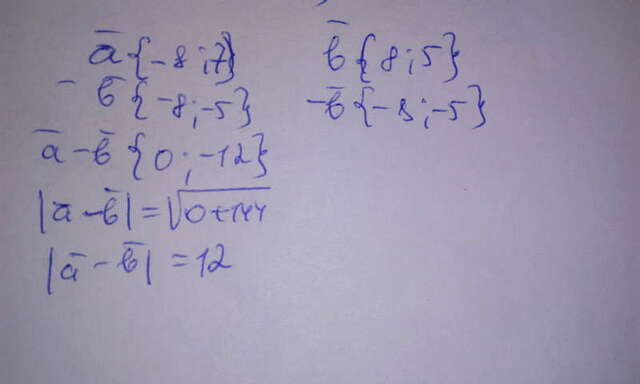 a̅ {-8 ; 7} b̅ {8 ; 5}
- b̅ {-8 ; -5} -b̅ {-8 ; -5}
a̅ - b̅ {0 ; -12}
|a̅ - b̅| = √0+144
|a̅ - b̅| = 12